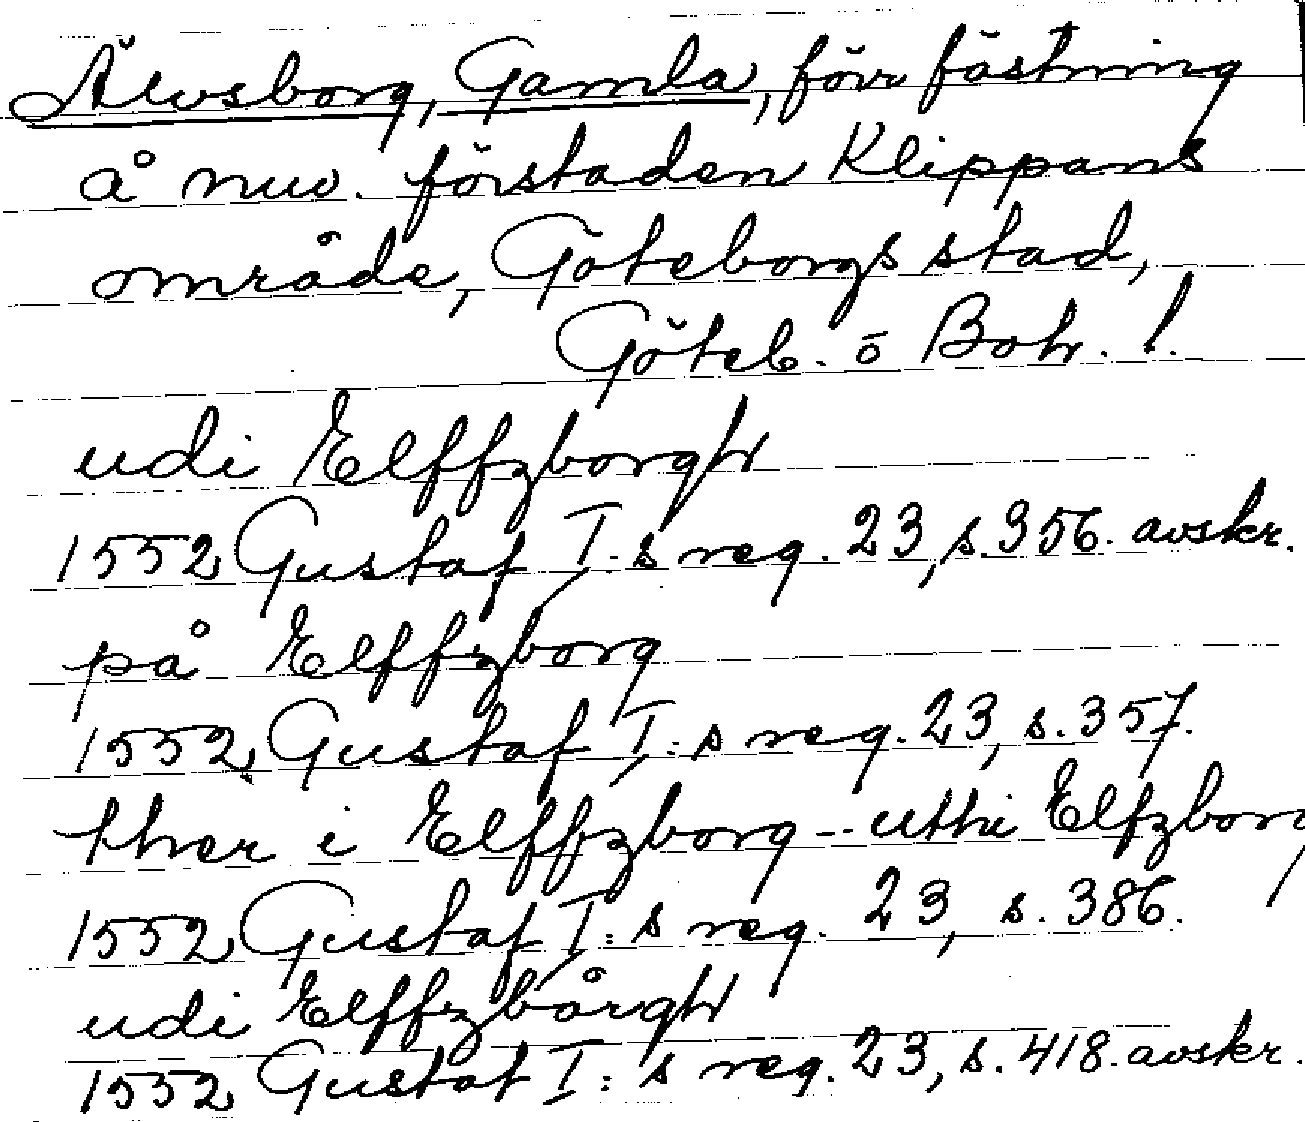 Älvsborg, Gamla, förr fästning
å nuv. förstaden Klippans
område, Göteborgs stad,
Göteb. o Boh. l.
udi Elffzborgh
1552 Gustaf I:s reg. 23, s. 356. avskr.
på Elffzborg
1552 Gustaf I:s reg. 23, s. 357.
ther i Elffzborg -- uthi Elfzborg
1552 Gustaf I:s reg. 23, s. 386.
udi Elffzbårgh
1552 Gustaf I:s reg. 23, s. 418. avskr.